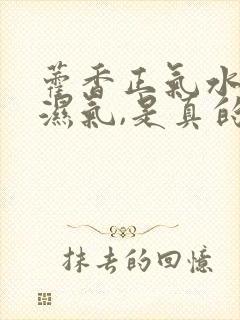 藿香正氣水
濕氣,是真的
抹去的回憶